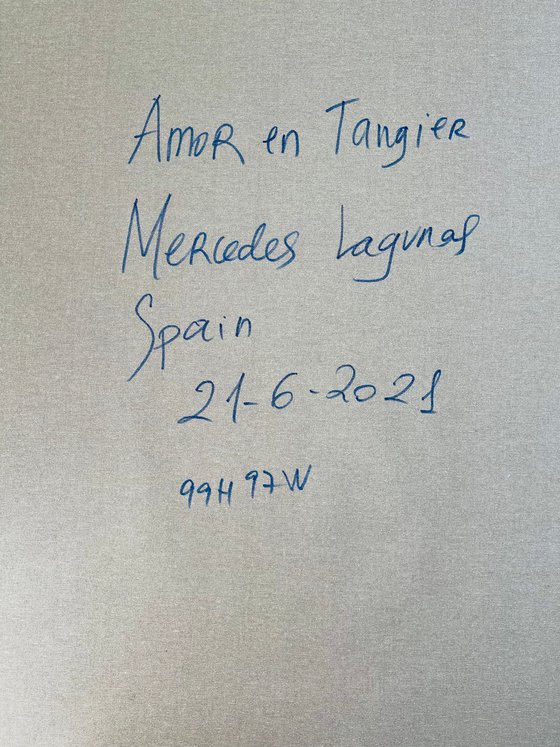 Amor en Tangier
Mercedes Lagunas
Spain
21-6-2021
99H 97W